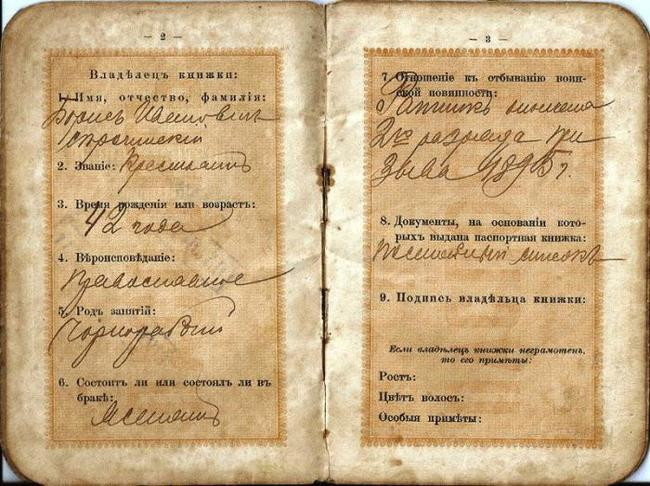 — 2 —
Владѣлецъ книжки:
1. Имя, отчество, фамилія:
Борисъ
2. Званіе: Крестьянинъ
3. Время рожденія или возрастъ:
42 года
4. Вѣроисповѣданіе:
Православное
5. Родъ занятій:
Чернорабочій
6. Состоитъ ли или состоялъ ли въ
бракѣ:
Женатъ
— 3 —
7. Отношеніе къ отбыванію воин-
ской повинности:
Ратникъ ополченія
2го разряда при
зыва 1895 г.
8. Документы, на основаніи кото-
рыхъ выдана паспортная книжка:
Посемейный списокъ
9. Подпись владѣльца книжки:
Если владѣлецъ книжки неграмотенъ,
то его примѣты:
Ростъ:
Цвѣтъ волосъ:
Особыя примѣты: